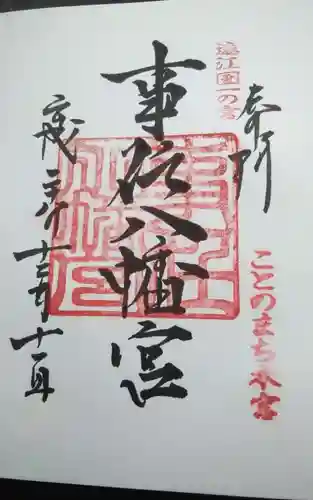 奉拝
遠江国一の宮
ことのまち本宮
事任八幡宮
平成 十二月十一日